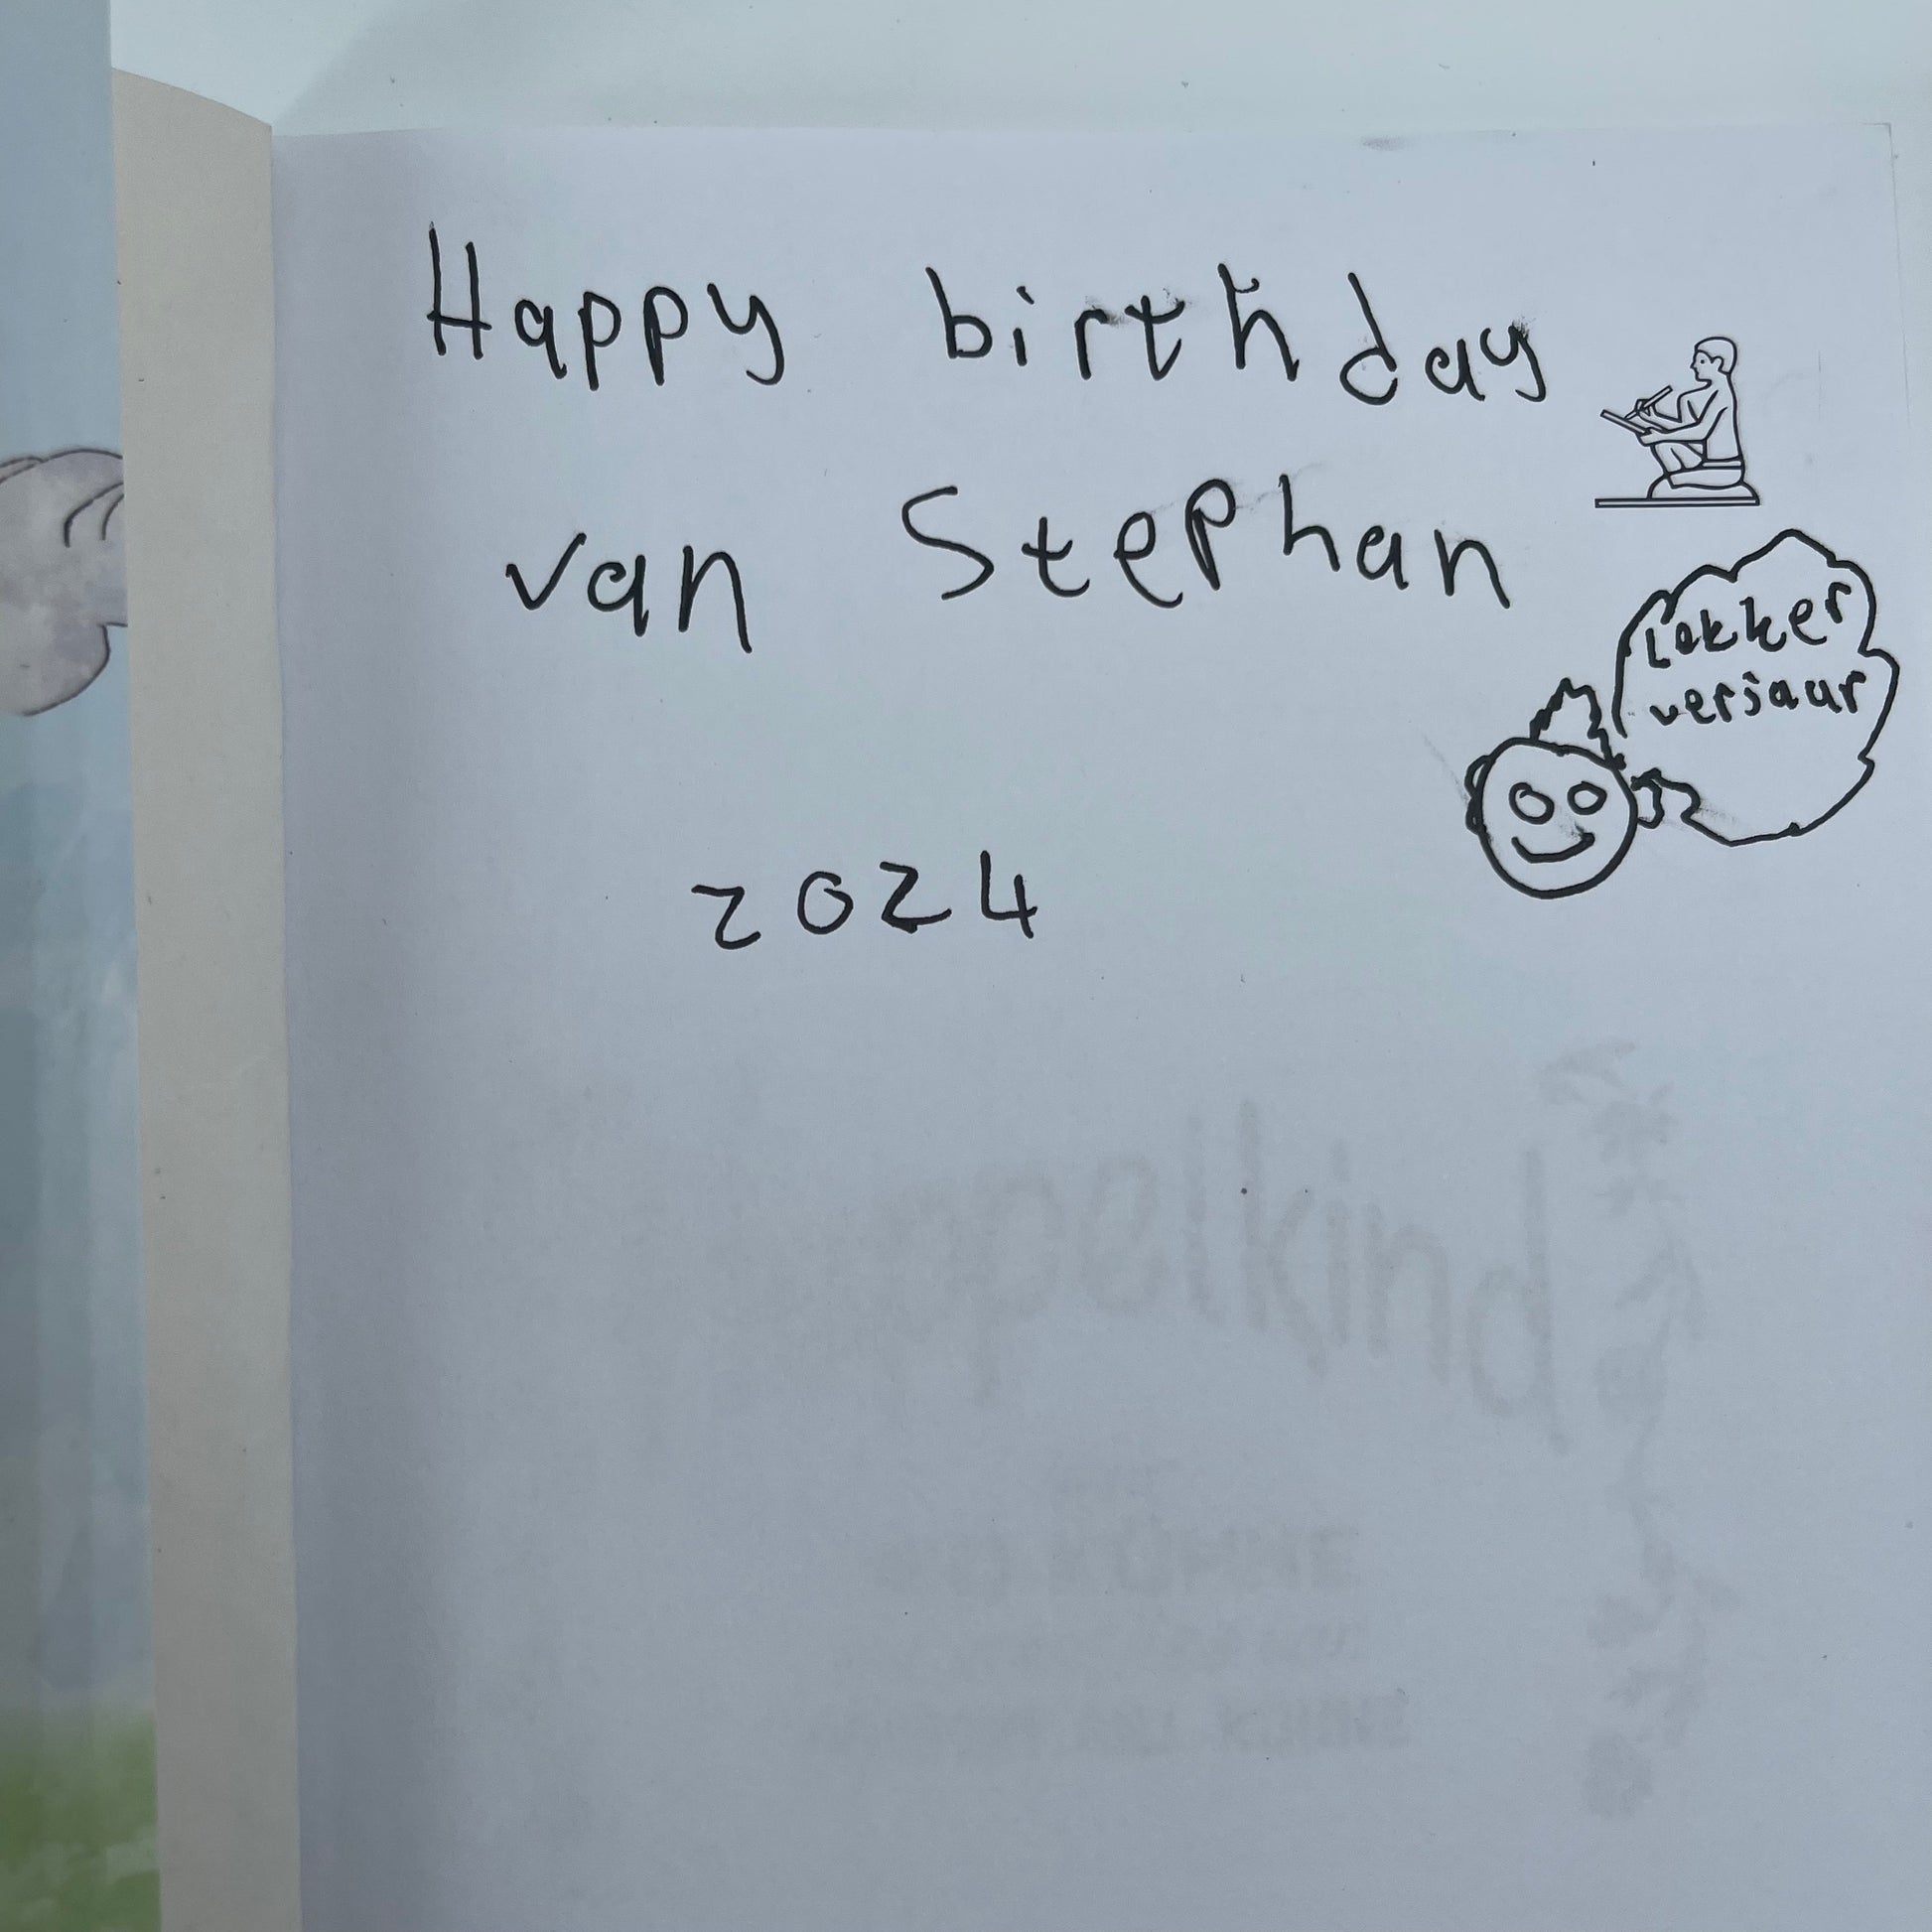 Happy birthday
van Stephan
Lekker
verjaar
2024